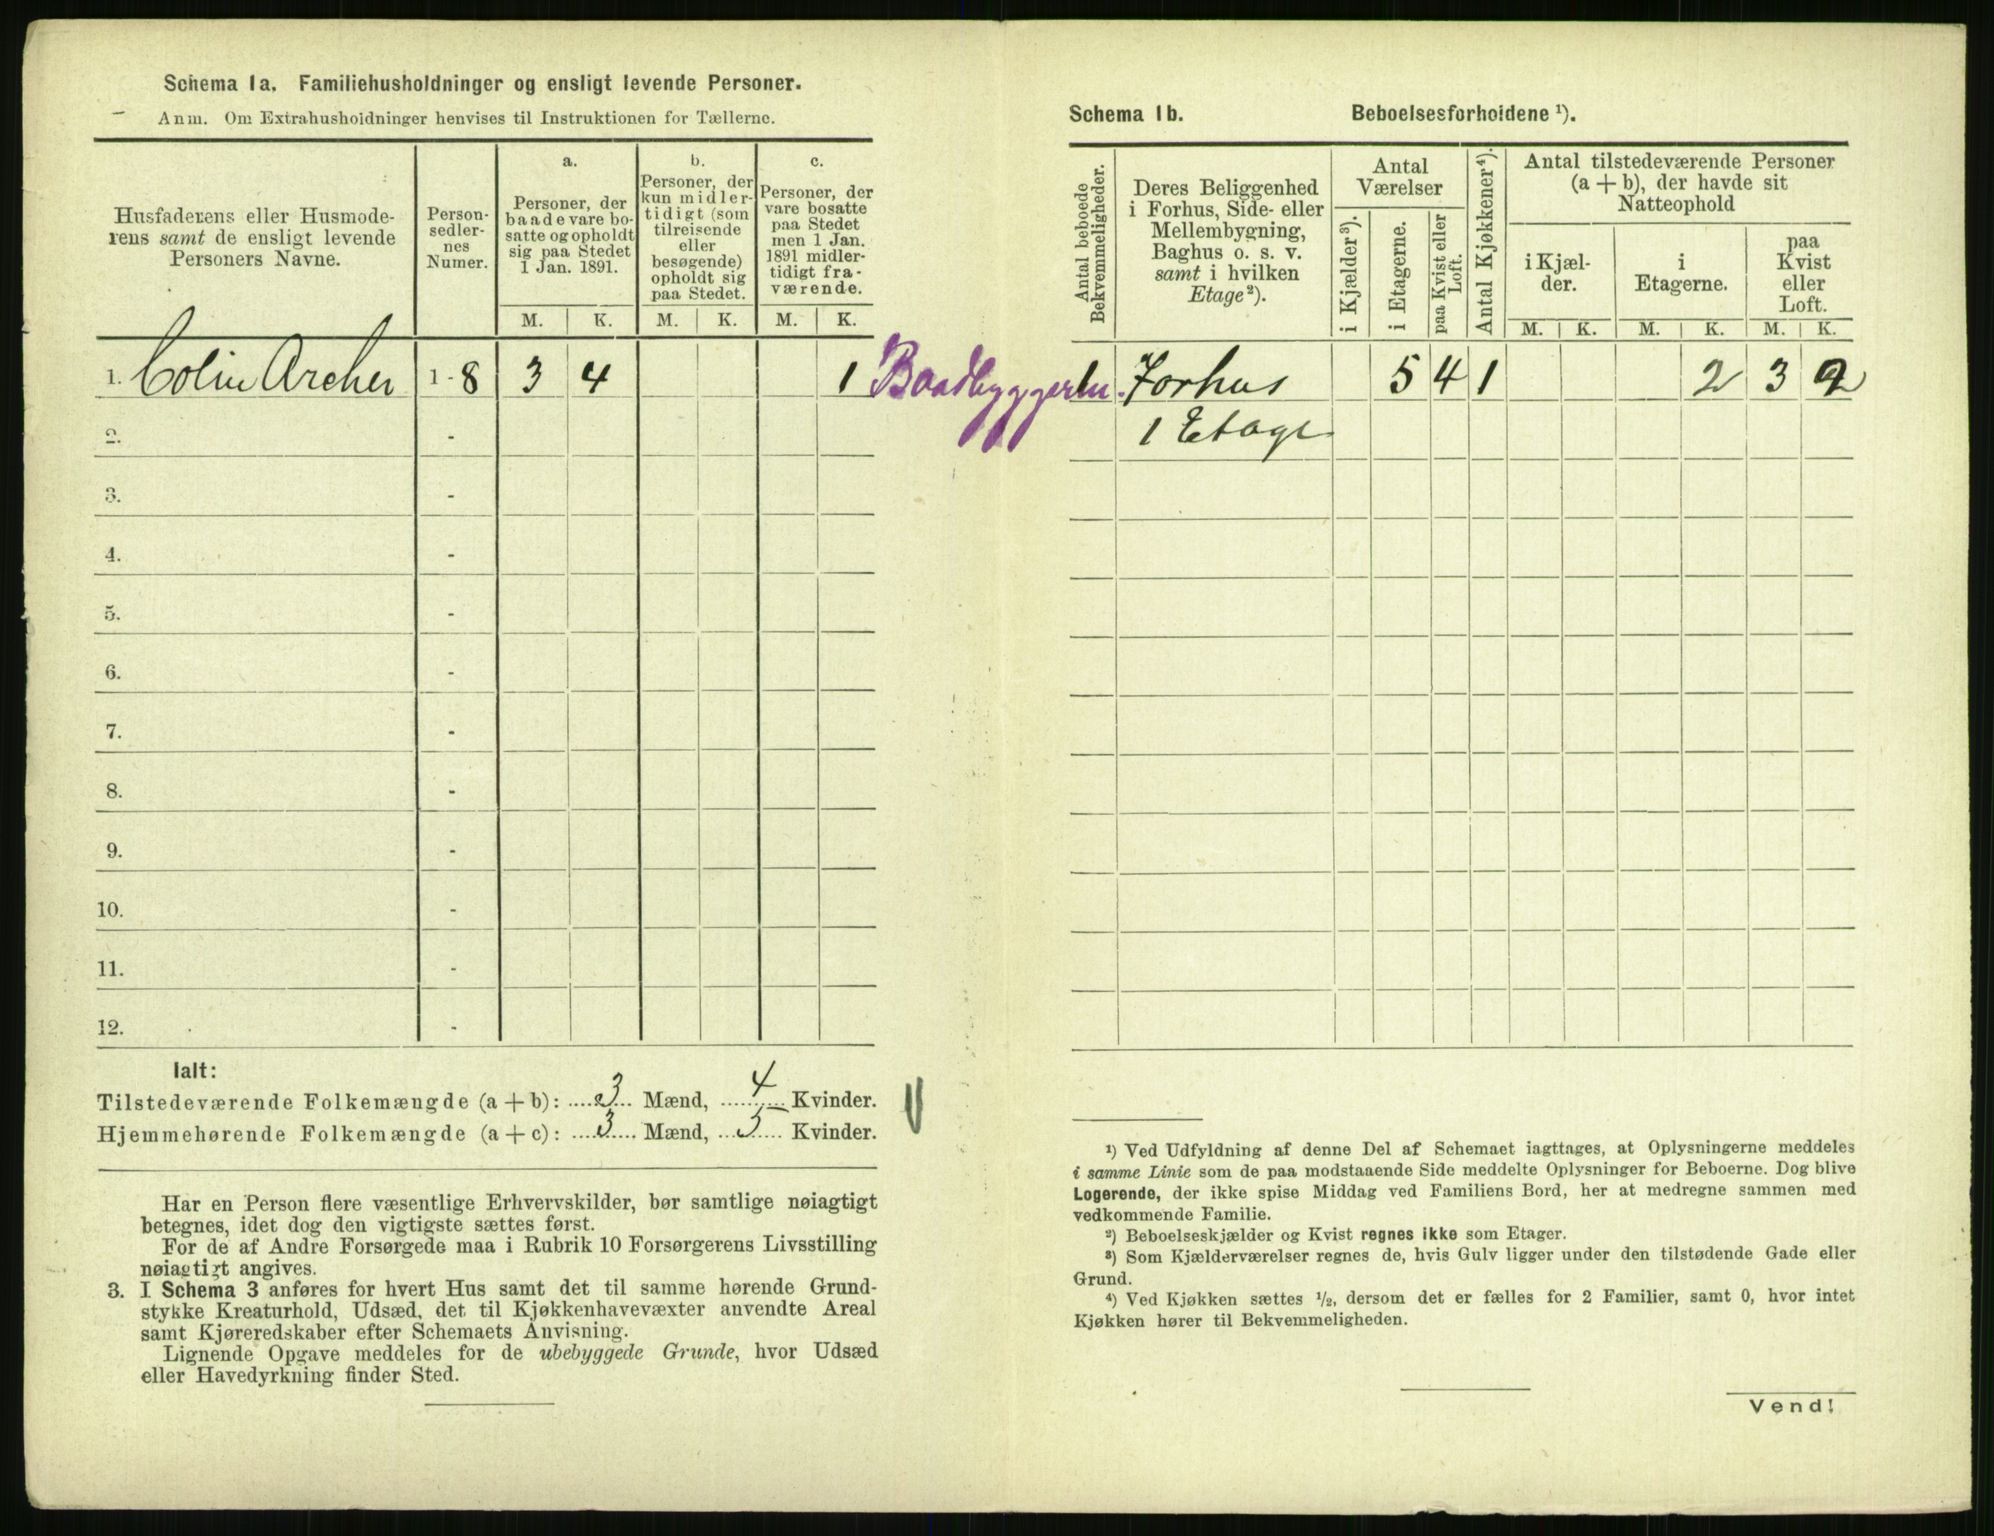 Schema 1a. Familiehusholdninger og ensligt levende Personer.
Anm. Om Extrahusholdninger henvises til Instruktionen for Tællerne.
Husfaderens eller Husmoderens samt de ensligt levende Personers Navne.
Personsedlernes Numer.
a.
Personer, der baade vare bosatte og opholdt sig paa Stedet 1 Jan. 1891.
b.
Personer, der kun midlertidigt (som tilreisende eller besøgende) opholdt sig paa Stedet.
c.
Personer, der vare bosatte paa Stedet men 1 Jan. 1891 midlertidigt fraværende.
M. K. M. K. M. K.
1. Colin Archer 1 - 8 3 4 1 Baadbyggeri
2. -
3. -
4. -
5. -
6. -
7. -
8. -
9. -
10. -
11. -
12. -
Ialt:
Tilstedeværende Folkemængde (a + b): 3 Mænd, 4 Kvinder.
Hjemmehørende Folkemængde (a + c): 3 Mænd, 5 Kvinder.
Har en Person flere væsentlige Erhvervskilder, bør samtlige nøiagtigt
betegnes, idet dog den vigtigste sættes først.
For de af Andre Forsørgede maa i Rubrik 10 Forsørgerens Livsstilling
nøiagtigt angives.
3. I Schema 3 anføres for hvert Hus samt det til samme hørende Grund-
stykke Kreaturhold, Udsæd, det til Kjøkkenhavevæxter anvendte Areal
samt Kjøreredskaber efter Schemaets Anvisning.
Lignende Opgave meddeles for de ubebyggede Grunde, hvor Udsæd
eller Havedyrkning finder Sted.
Schema 1b. Beboelsesforholdene ¹).
Antal beboede Bekvemmeligheder.
Deres Beliggenhed i Forhus, Side- eller Mellembygning, Baghus o. s. v. samt i hvilken Etage ²).
Antal Værelser
i Kjælder ³).
i Etagerne.
paa Kvist eller Loft.
Antal Kjøkkener ⁴).
Antal tilstedeværende Personer (a + b), der havde sit Natteophold
i Kjælder.
i Etagerne.
paa Kvist eller Loft.
M. K. M. K. M. K.
1 Forhus 5 4 1 2 3 2
1 Etage
¹) Ved Udfyldning af denne Del af Schemaet iagttages, at Oplysningerne meddeles
i samme Linie som de paa modstaaende Side meddelte Oplysninger for Beboerne. Dog blive
Logerende, der ikke spise Middag ved Familiens Bord, her at medregne sammen med
vedkommende Familie.
²) Beboelseskjælder og Kvist regnes ikke som Etager.
³) Som Kjælderværelser regnes de, hvis Gulv ligger under den tilstødende Gade eller
Grund.
⁴) Ved Kjøkken sættes ½, dersom det er fælles for 2 Familier, samt 0, hvor intet
Kjøkken hører til Bekvemmeligheden.
Vend!